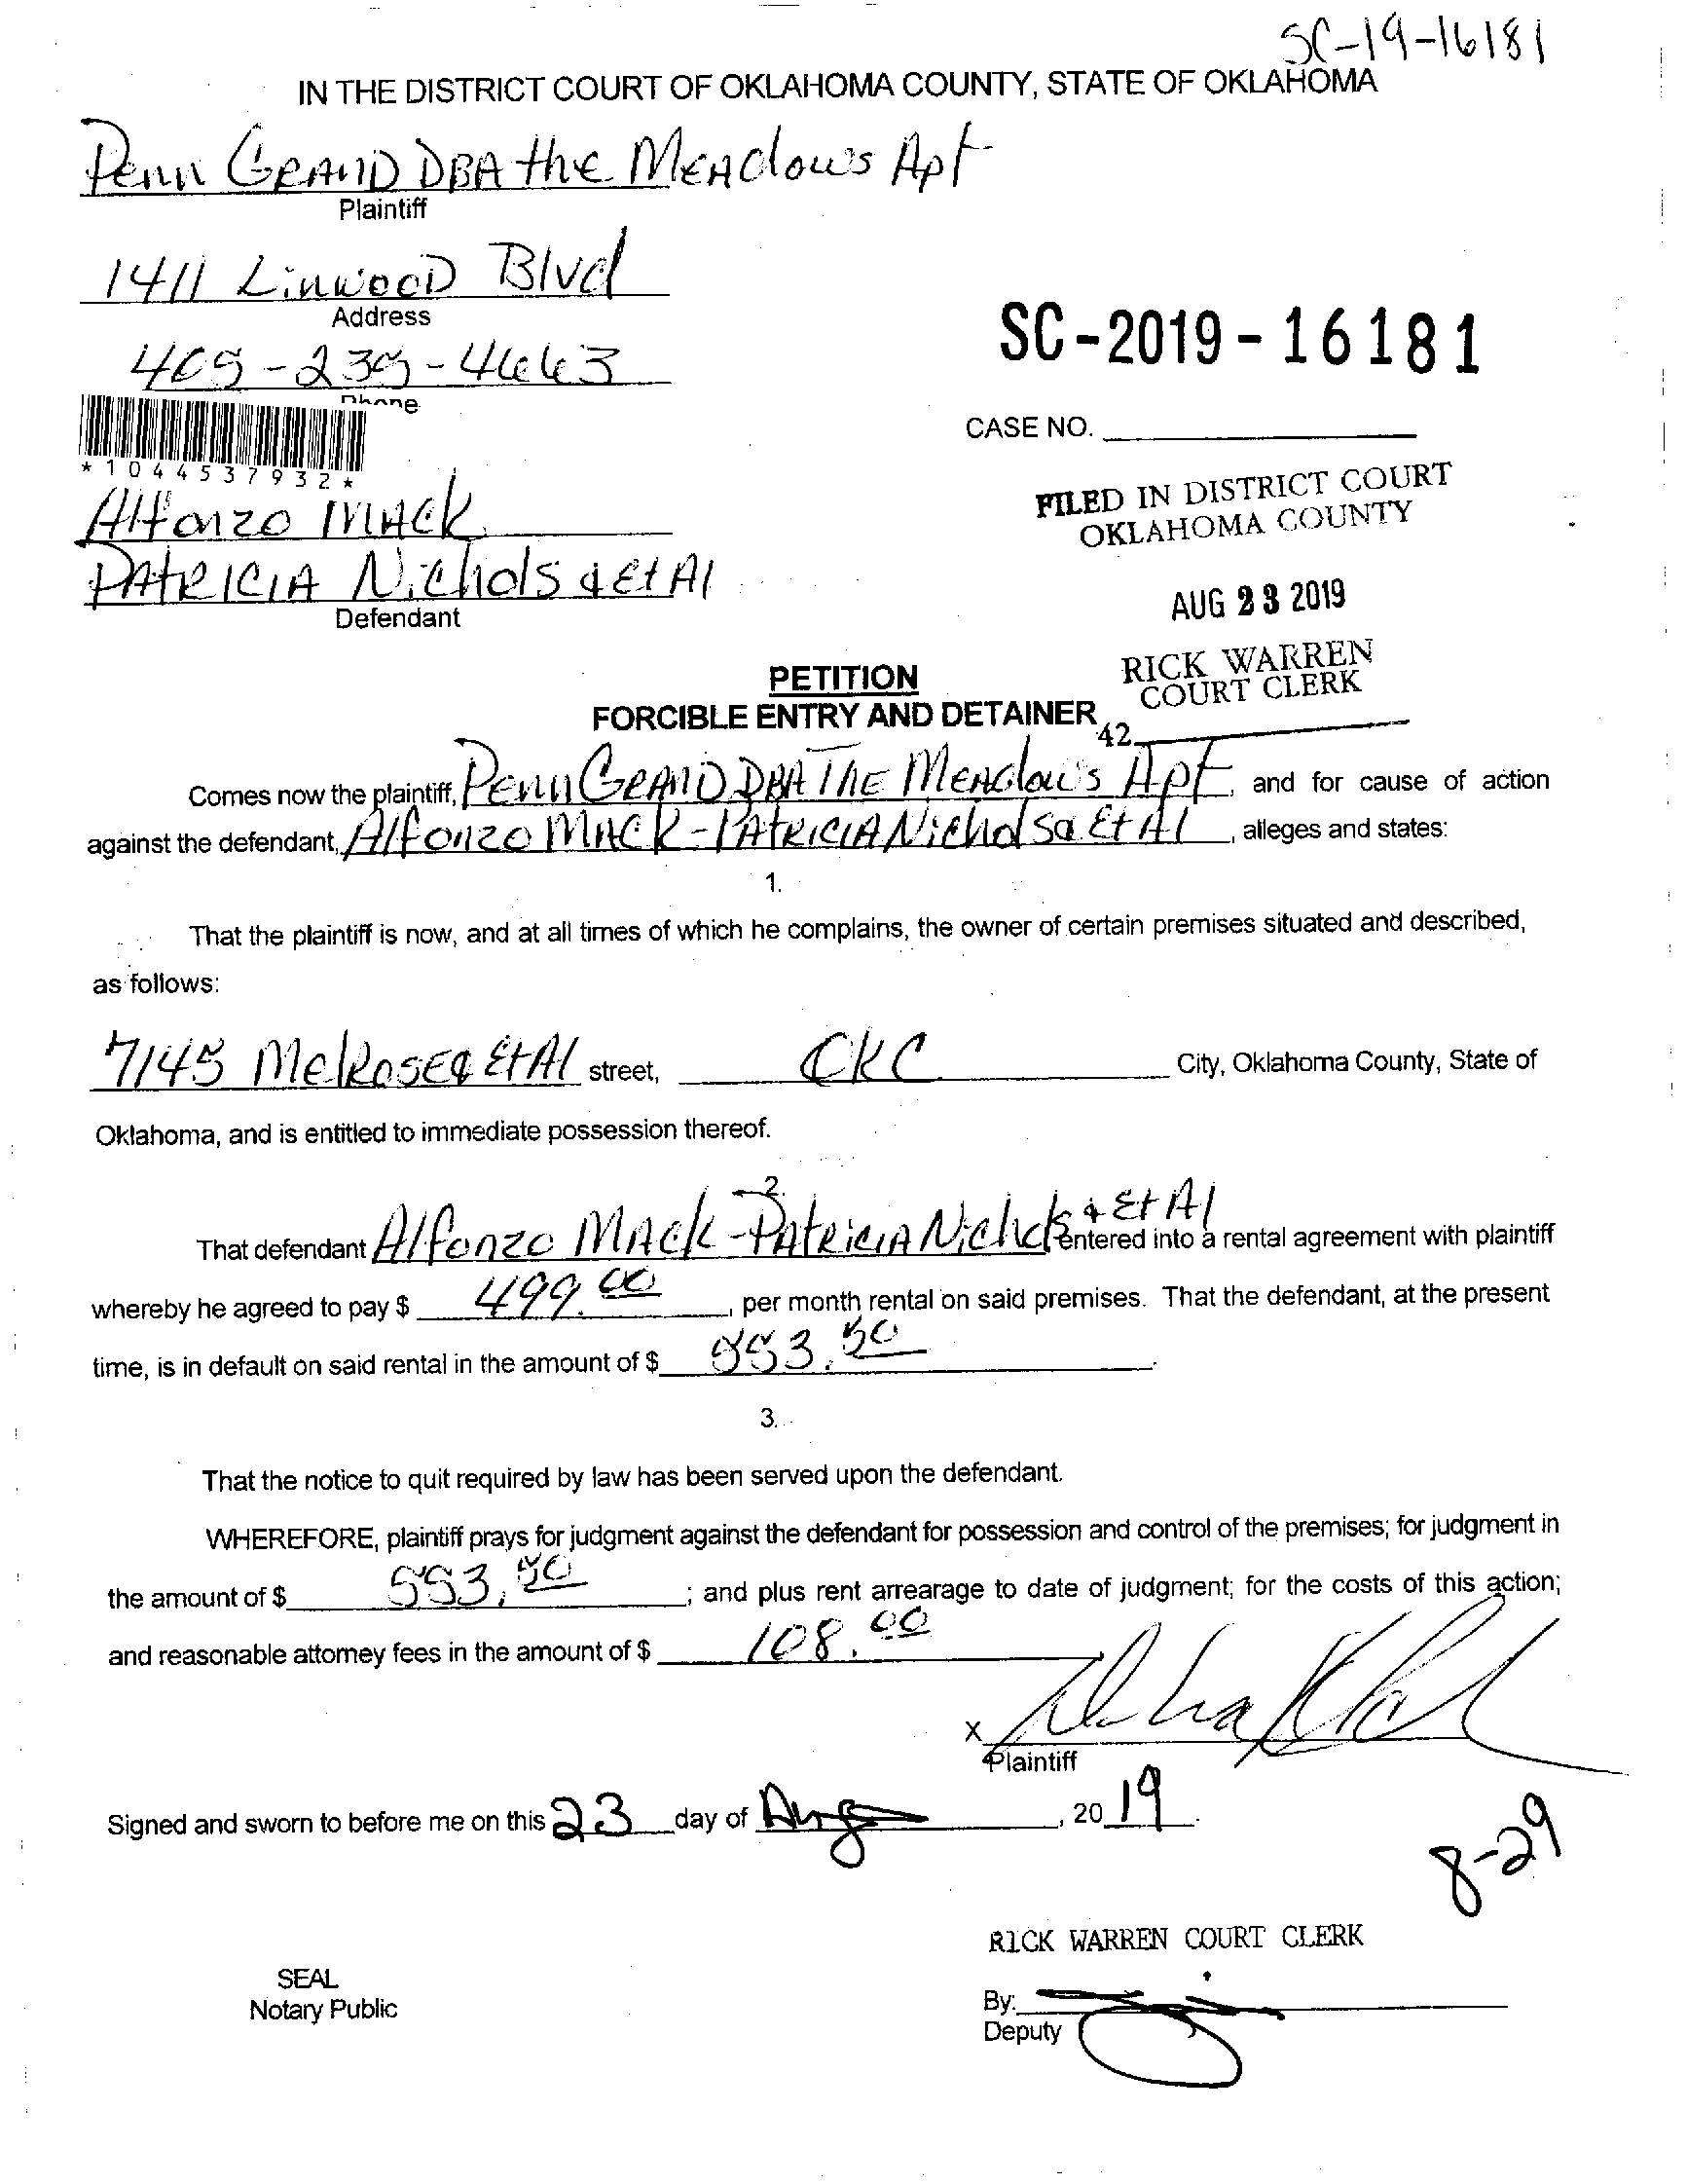 SC-19-16181
IN THE DISTRICT COURT OF OKLAHOMA COUNTY, STATE OF OKLAHOMA
Penn GRAND DBA the MEAdows Apt
Plaintiff
1411 LinwooD Blvd
Address
405-235-4663
Phone
SC-2019-16181
CASE NO.
*1044537932*
FILED IN DISTRICT COURT
OKLAHOMA COUNTY
Alfonzo MACK
PAtRICIA Nichols & Et Al
Defendant
AUG 23 2019
RICK WARREN
COURT CLERK
42
PETITION
FORCIBLE ENTRY AND DETAINER
Comes now the plaintiff, Penn GRAND DBA THE MEAdows Apt, and for cause of action
against the defendant, Alfonzo MACK-PAtRICIA Nichols & Et Al, alleges and states:
1.
That the plaintiff is now, and at all times of which he complains, the owner of certain premises situated and described,
as follows:
7145 MelRosE & Et Al street, OKC City, Oklahoma County, State of
Oklahoma, and is entitled to immediate possession thereof.
2.
That defendant Alfonzo MAck-PAtRiciA Nichols & Et Al entered into a rental agreement with plaintiff
whereby he agreed to pay $ 499.00, per month rental on said premises. That the defendant, at the present
time, is in default on said rental in the amount of $ 553.50.
3.
That the notice to quit required by law has been served upon the defendant.
WHEREFORE, plaintiff prays for judgment against the defendant for possession and control of the premises; for judgment in
the amount of $ 553.50; and plus rent arrearage to date of judgment; for the costs of this action;
and reasonable attorney fees in the amount of $ 108.00
X
Plaintiff
Signed and sworn to before me on this 23 day of Aug, 20 19.
8-29
RICK WARREN COURT CLERK
SEAL
Notary Public
By:
Deputy